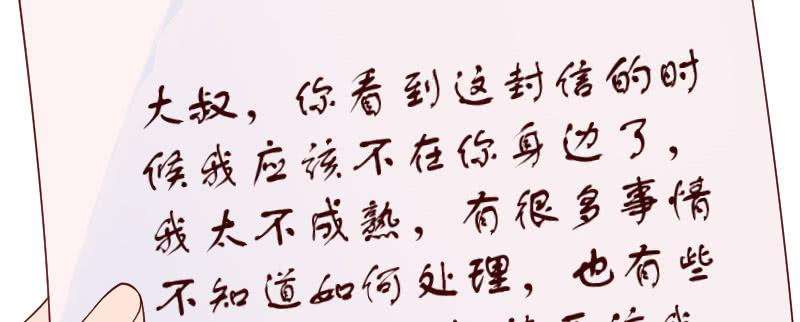 大叔，你看到这封信的时
候我应该不在你身边了，
我太不成熟，有很多事情
不知道如何处理，也有些